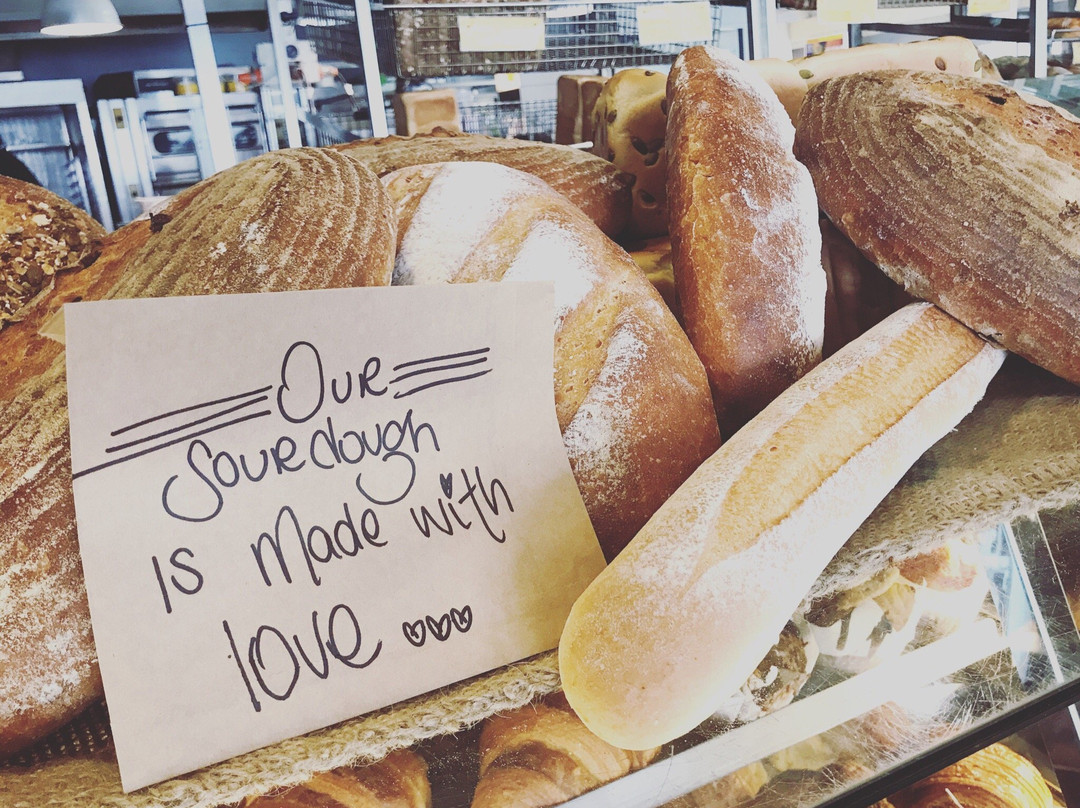 Our
Sourdough
is Made with
love ...